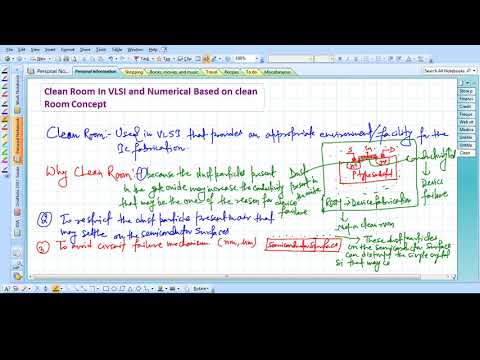 Personal No...
Personal Information
Shopping
Books, movies, and music
Travel
Recipes
To do
Miscellaneous
Search All Notebooks
Work Notebook
Personal Notebook
Clean Room In VLSI and Numerical Based on clean
Room Concept
Clean Room:- Used in VLSI that provides an appropriate environment/facility for the
Ic fabrication.
Why Clean Room: ① because the dust particles present
in the gate oxide may increase the conductivity
that may be the one of the reason for device
failure
Dust
present in
oxide
S
P type substrate
Room :- Device fabrication
not in clean room
conductivity
Device
failure
② To restrict the dust particle present in air that
may settle on the semiconductor surfaces
③ To avoid circuit failure mechanism (nm, μm)
Semiconductor Surface
These dust particles
on the semiconductor surface
can disturb the single crystal
Si that may